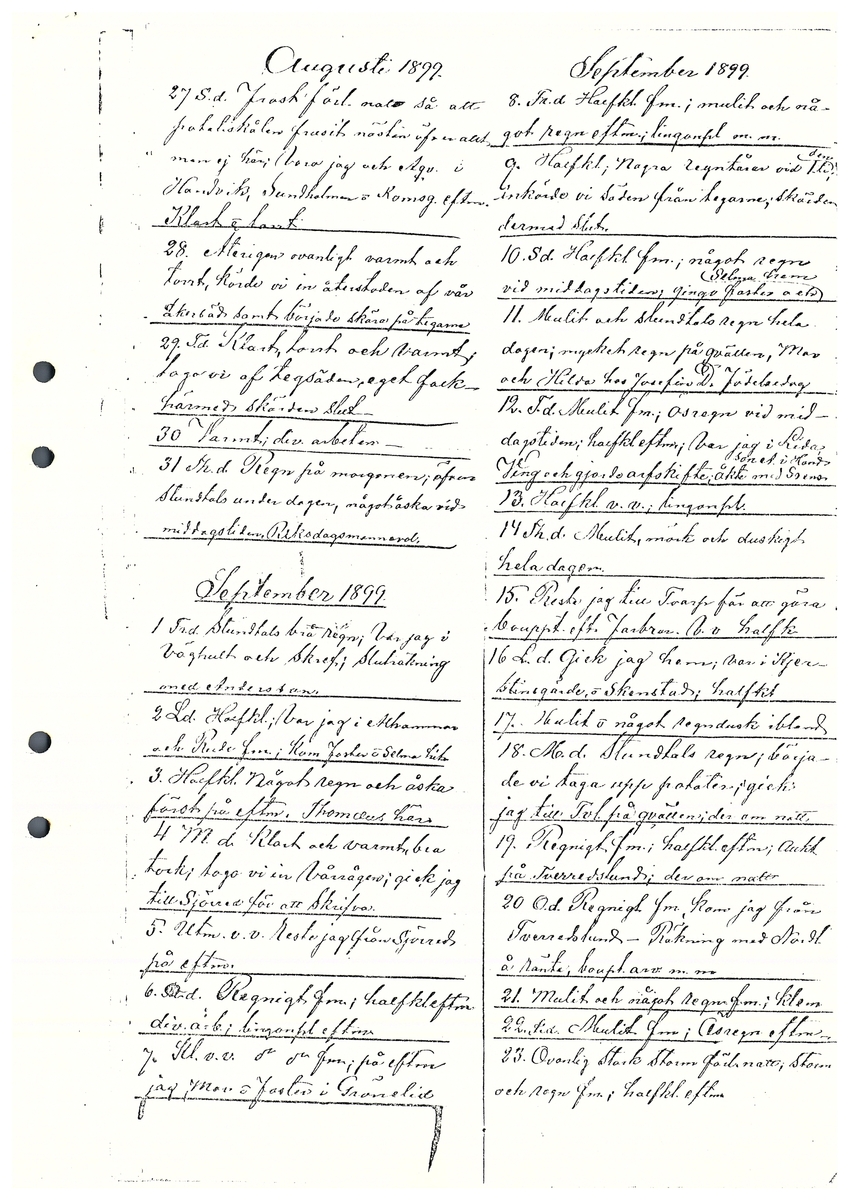 Augusti 1899.
27 S.d. Frost förl. natt så att
potatiskålen frusit nästan öfverallt
men ej här; Voro jag och Agv. i
Handvik, Sundholmen o Komsg. eftm.
Klart o torrt
28. Återigen ovanligt varmt och
torrt, körde vi in återstoden af vår
åkersäd samt började skära på tegarne
29. Td. Klart, torrt och varmt;
togo vi af tegsäden, eget fack
härmed skörden slut
30 Varmt; div. arbeten
31 Th.d Regn på morgonen; äfven
stundtals under dagen, något åska vid
middagstiden. Riksdagsmannaval.
September 1899.
1 Fr.d Stundtals bra regn; Var jag i
Väghult och Skref; Sluträkning
med Andersson.
2 Ld. Halfkl.; Var jag i
och fm.; Kom Faster o Selma hit
3. Halfkl. Något regn och åska
först på eftm. Thomæus här
4 M.d. Klart och varmt, bra
tork; togo vi in Vårrågen; gick jag
till Sjörred för att skrifva.
5. Utm. v.v. Reste jag från Sjörred
på eftm.
6. d. Regnigt fm.; halfkl eftm.
div. arb.; lingonpl eftm
7. Kl. v.v. fm; på eftm
jag, Mor o Faster i Grönelid
September 1899.
8. Fr.d Halfkl. fm.; mulit och nå-
got regn eftm.; lingonpl m. m.
9. Halfkl.; Några regntårar vid
inkörde vi säden från tegarne; skörden
dermed slut.
10. Sd. Halfkl fm.; något regn
Selma hem
vid middagstiden; gingo Faster och
11. Mulit och stundtals regn hela
dagen; mycket regn på qvällen, Mor
och Hilda hos Josefin D. Födelsedag
12. T.d. Mulit fm.; ösregn vid mid-
dagstiden; halfkl eftm; Var jag i
Ving och gjorde arfskifte; åkte med
13. Halfkl v.v.; lingonpl.
14 Th.d. Mulit, mörk och duskigt
hela dagen.
15. Reste jag till Tvarp för att göra
bouppt. eft. Farbror. V.v halfk
16 L.d. Gick jag hem; var i Kjer-
stinsgärde o Skenstad; halfkl
17. Mulit o något regndusk ibland
18. M.d. Stundtals regn; börja-
de vi taga upp potäter; gick
jag till Tvl. på qvällen; der om natt.
19. Regnigt fm.; halfkl. eftm; Aukt
på Tverredslund; der om natten
20 Od. Regnigt fm. Kom jag från
Tverredslund – Räkning med Nordl.
å ränta; boupt. arv. m. m
21. Mulit och något regn fm.; klem
22. Fr.d. Mulit fm; Ösregn eftm
23. Ovanlig stark storm förl. natt; storm
och regn fm.; halfkl. eftm